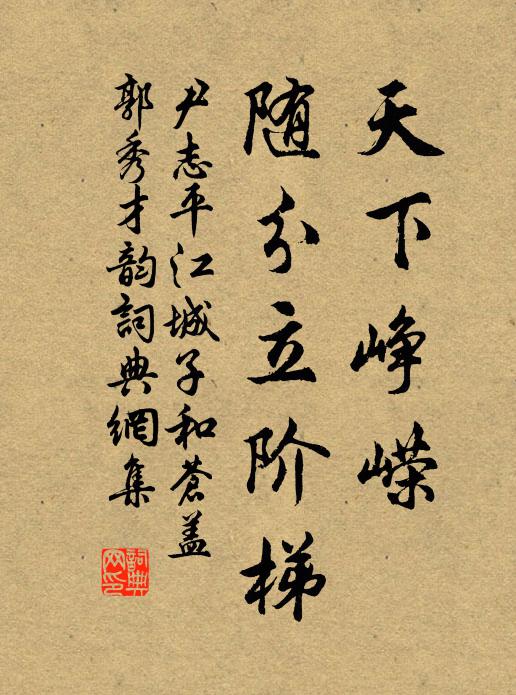 天下峥嵘
随分立阶梯
尹志平江城子和蒼盖
郭秀才韵詞典網集
詞典网印